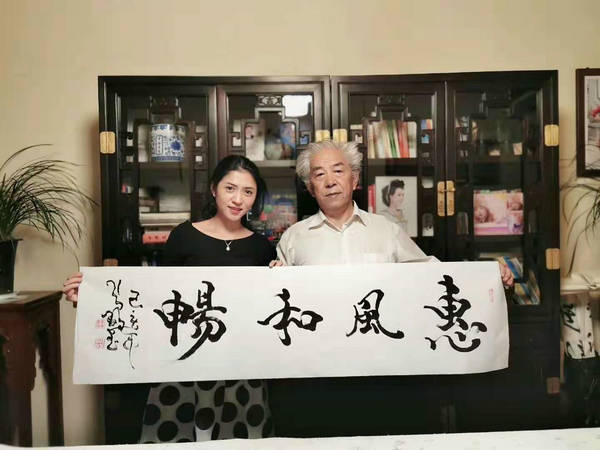 惠風和暢
己亥年